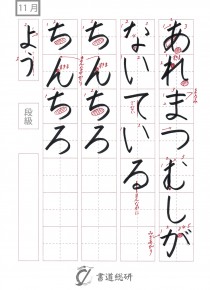 11月
あれまつむしが
ないている
ちんちろ
ちんちろ
よう
段級
書道総研